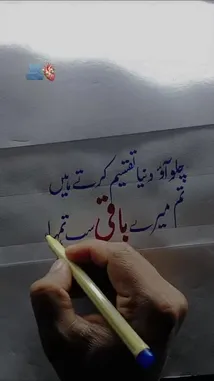 چلو آؤ دنیا تقسیم کرتے ہیں
تم میرے باقی سب تمہا